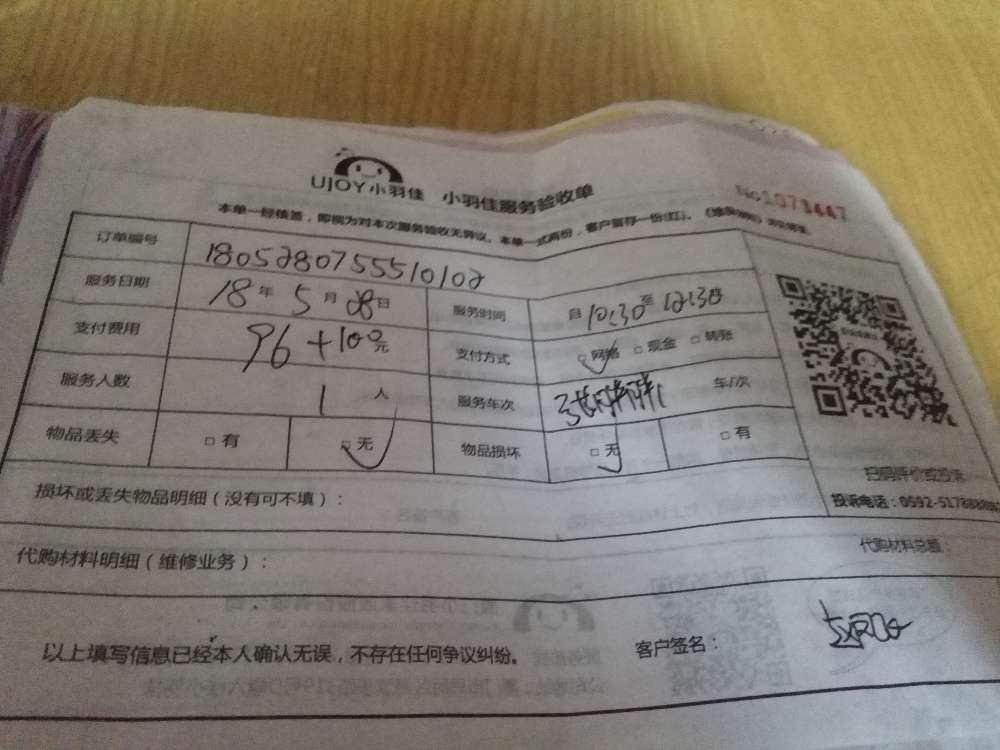 UJOY小羽佳 小羽佳服务验收单
No.1073447
本单一经核签，即视为对本次服务验收无异议。本单一式两份，客户留存一份(红)。
订单编号 1805280755510102
服务日期 18年5月28日 服务时间 自10:30至12:30
支付费用 96+100元 支付方式 □网络 □现金 □转账
服务人数 1人 服务车次 车/次
物品丢失 □有 □无 物品损坏 □无 □有
扫码评价或投诉
损坏或丢失物品明细（没有可不填）：
投诉电话：0592-517888
代购材料明细（维修业务）： 代购材料总额：
以上填写信息已经本人确认无误，不存在任何争议纠纷。 客户签名：